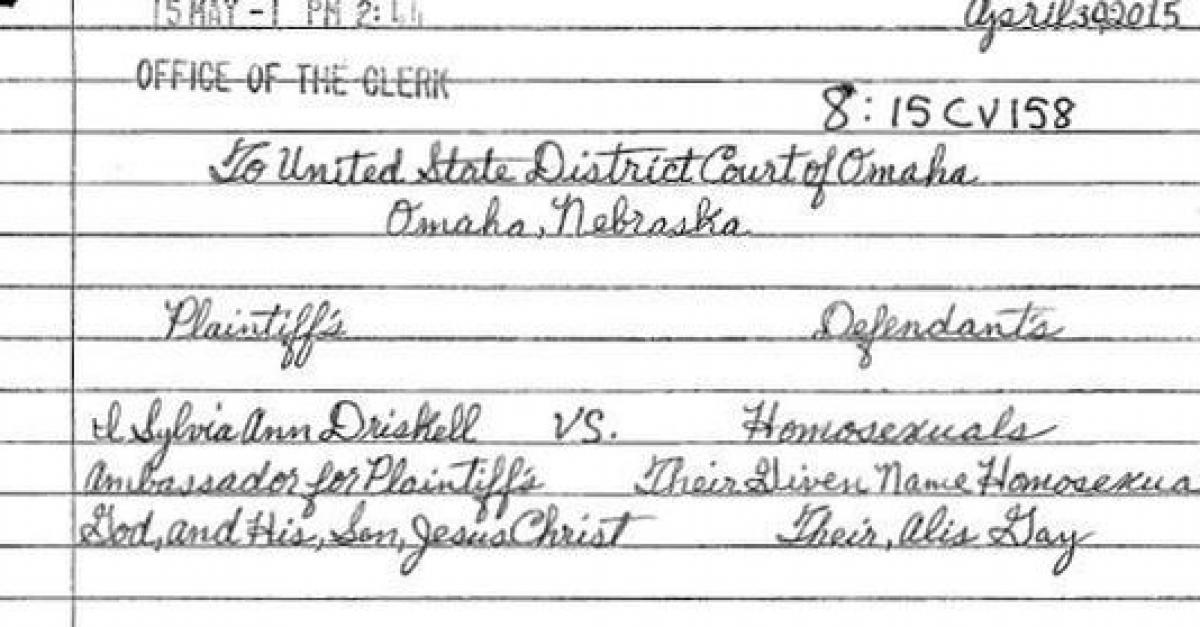 15 MAY -1 PM 2:
April 30, 2015
OFFICE OF THE CLERK
8:15CV158
To United State District Court of Omaha
Omaha, Nebraska
Plaintiff's
Defendant's
I Sylvia Ann Driskell VS. Homosexuals
Ambassador for Plaintiff's Their Given Name Homosexua
God, and His, Son, Jesus Christ Their, Alis Gay